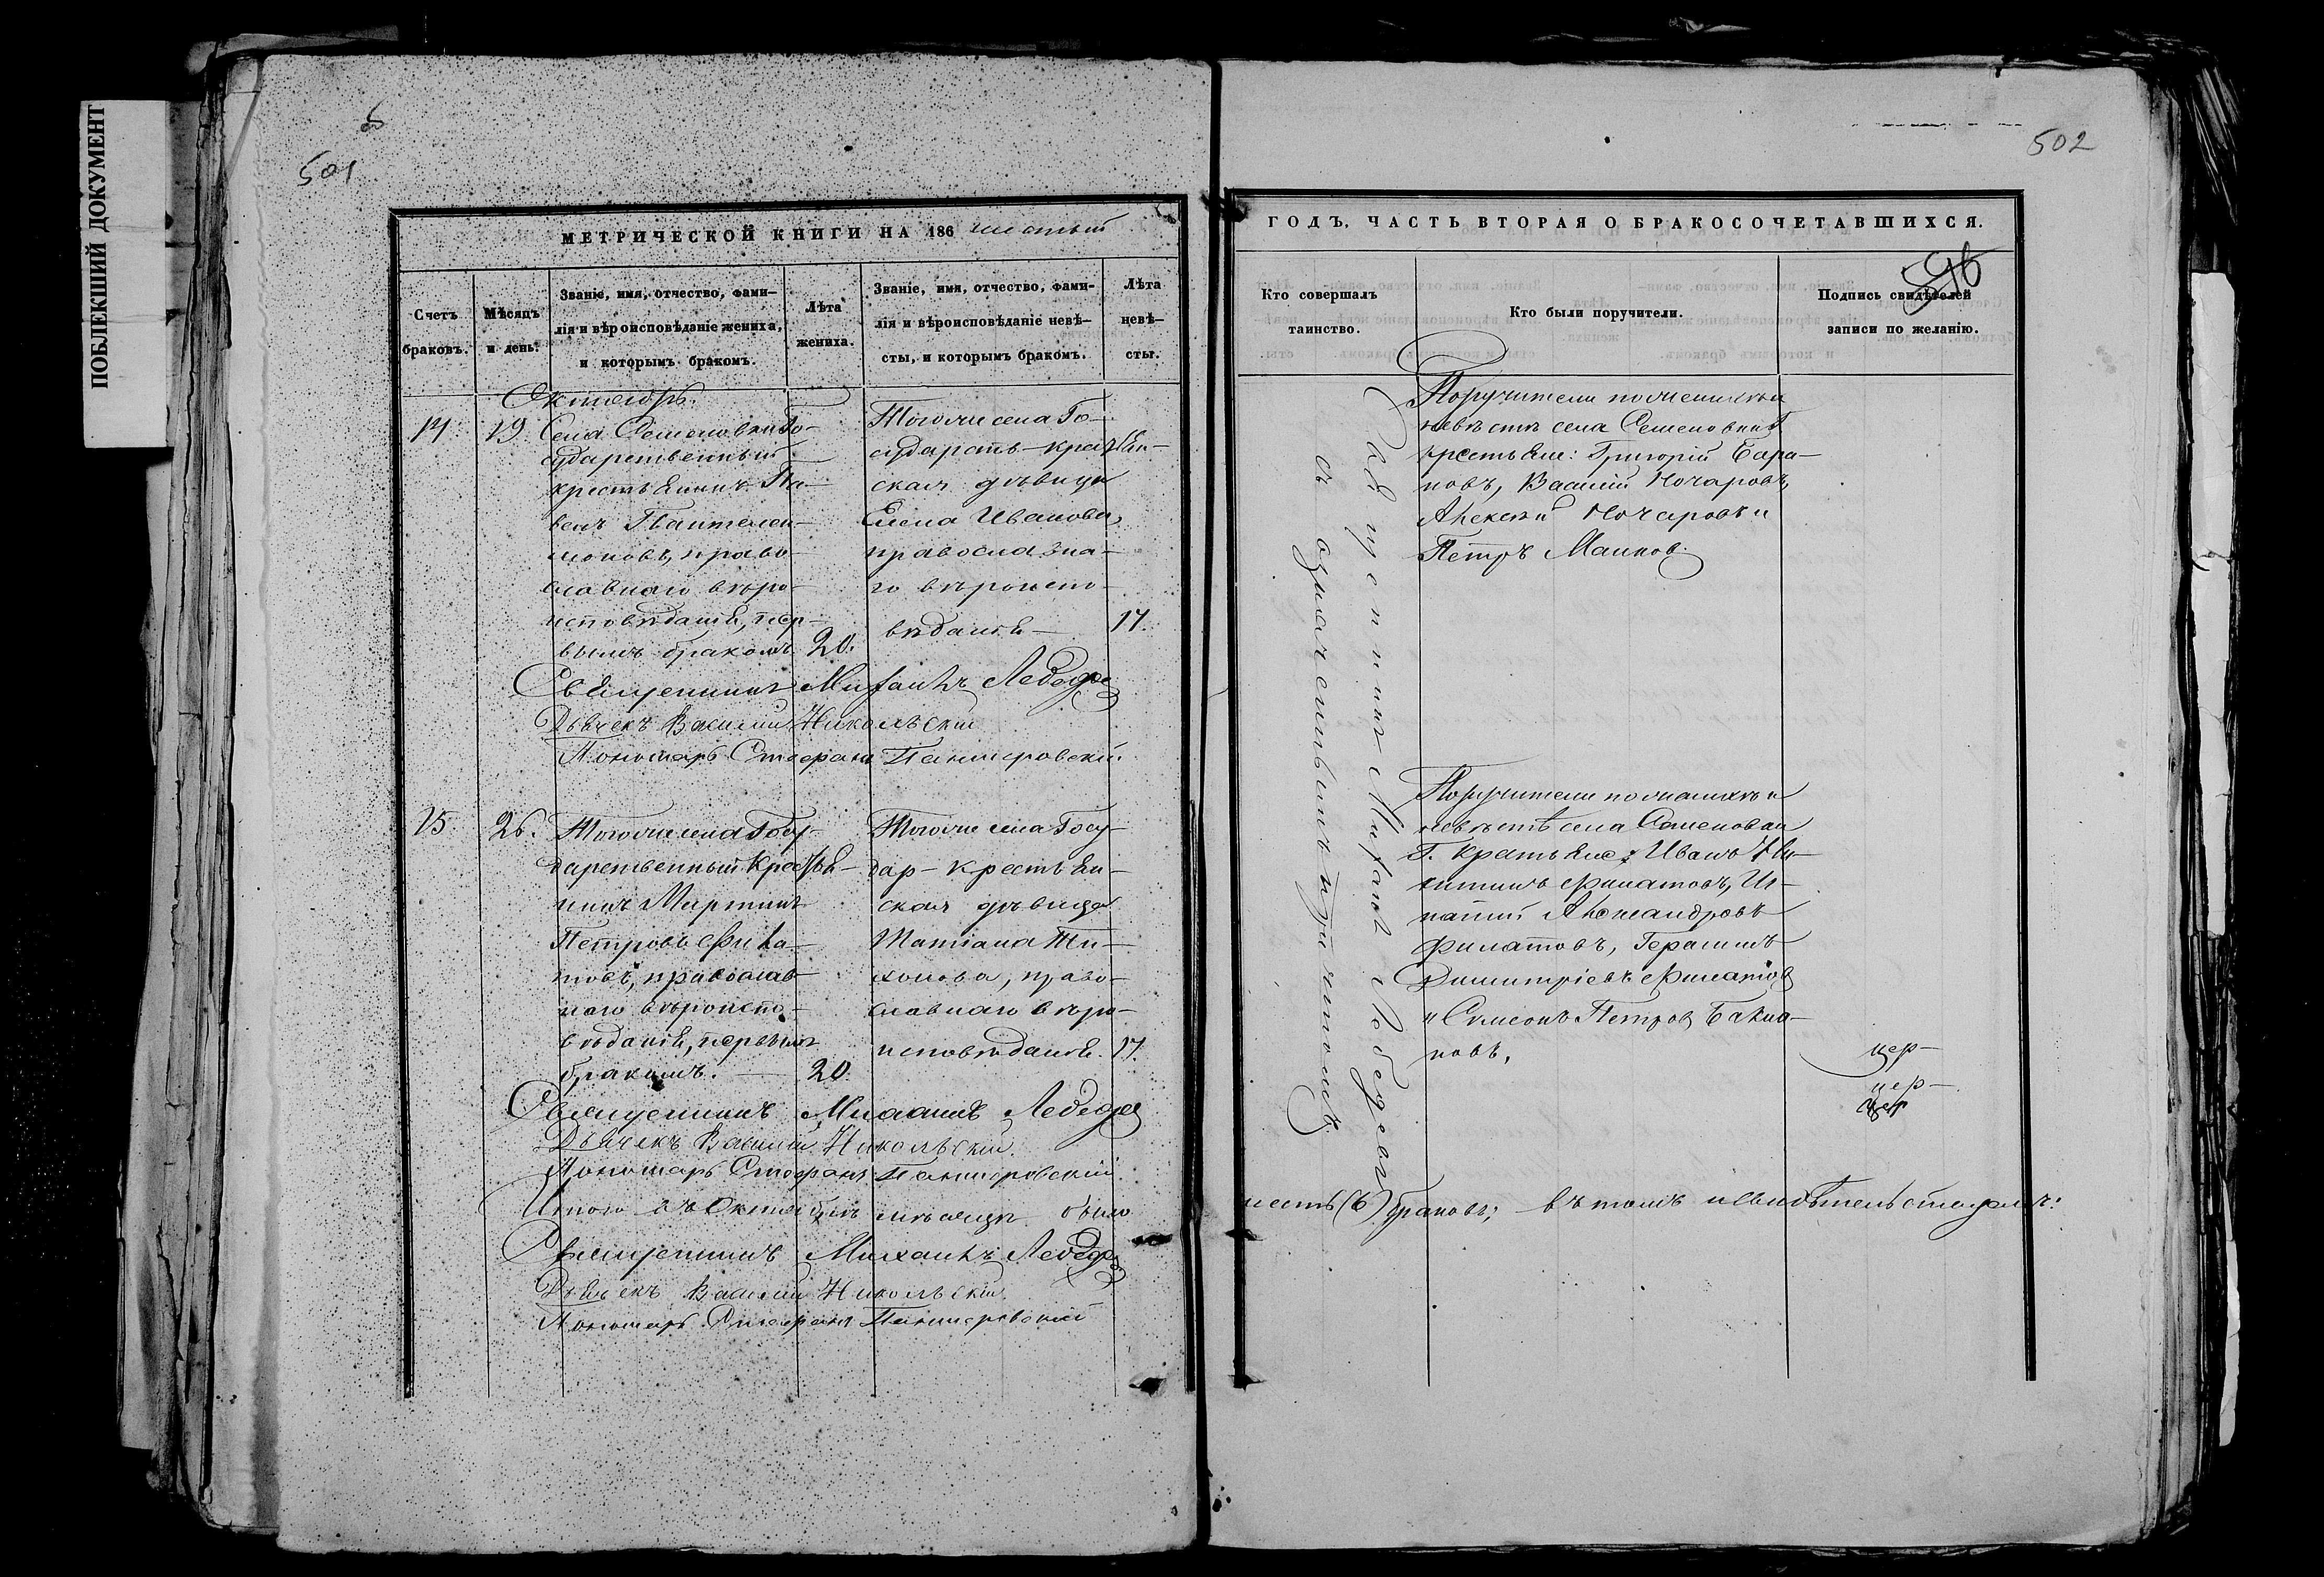 ПОБЛЕКШИЙ ДОКУМЕНТ
501
МЕТРИЧЕСКОЙ КНИГИ НА 186 шестый
Счетъ браковъ.
Мѣсяцъ и день.
Званіе, имя, отчество, фами-
лія и вѣроисповѣданіе жениха,
и которымъ бракомъ.
Лѣта жениха.
Званіе, имя, отчество, фами-
лія и вѣроисповѣданіе невѣ-
сты, и которымъ бракомъ.
Лѣта невѣ-
сты.
Октябрь.
14.
19.
Села Семеновки Го-
сударственный
крестьянинъ Па-
велъ Пантелеи-
моновъ, право-
славнаго вѣро-
исповѣданія, пер-
вымъ бракомъ
20.
Тогоже села Го-
сударств-крестьян-
ская дѣвица
Елена Иванова,
православна-
го вѣроиспо-
вѣданія
17.
Священникъ Михаилъ Лебедевъ
Дьячекъ Василій Никольскій
Пономарь Стефанъ
15.
26.
Тогоже села Госу-
дарственный крестья-
нинъ Мартинъ
Петровъ Фила-
товъ, православ-
наго вѣроиспо-
вѣданія, первымъ
бракомъ.
20.
Тогоже села Госу-
дар-крестьян-
ская дѣвица
Татіана Ти-
хонова, право-
славнаго вѣро-
исповѣданія.
17.
Священникъ Михаилъ Лебедевъ
Дьячекъ Василій Никольскій.
Пономарь Стефанъ
Итого въ Октябрѣ мѣсяцѣ было
Священникъ Михаилъ Лебедевъ
Дьячекъ Василій Никольскій
Пономарь Стефанъ
502
596
ГОДЪ, ЧАСТЬ ВТОРАЯ О БРАКОСОЧЕТАВШИХСЯ.
Кто совершалъ
таинство.
Кто были поручители.
Подпись свидѣтелей
записи по желанію.
Священникъ Михаилъ Лебедевъ
съ означеннымъ причтомъ.
Поручители по женихѣ и
невѣстѣ села Семеновки Г.
крестьяне: Григорій Бара-
новъ, Василій Кочаровъ,
Алексѣй Кочаровъ и
Петръ Маинов.
Поручители по женихѣ и
невѣстѣ села Семеновки
Г. крестьяне: Иванъ Ни-
китинъ Филатовъ, Иг-
натій Александровъ
Филатовъ, Герасимъ
Димитріевъ Филатовъ
и Сумеонъ Петровъ Бакла-
новъ.
цер-
цер-
цер
шесть (6) браковъ; въ томъ и свидѣтельствуемъ: